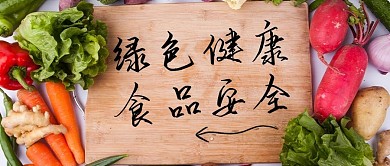 绿色健康
食品安全